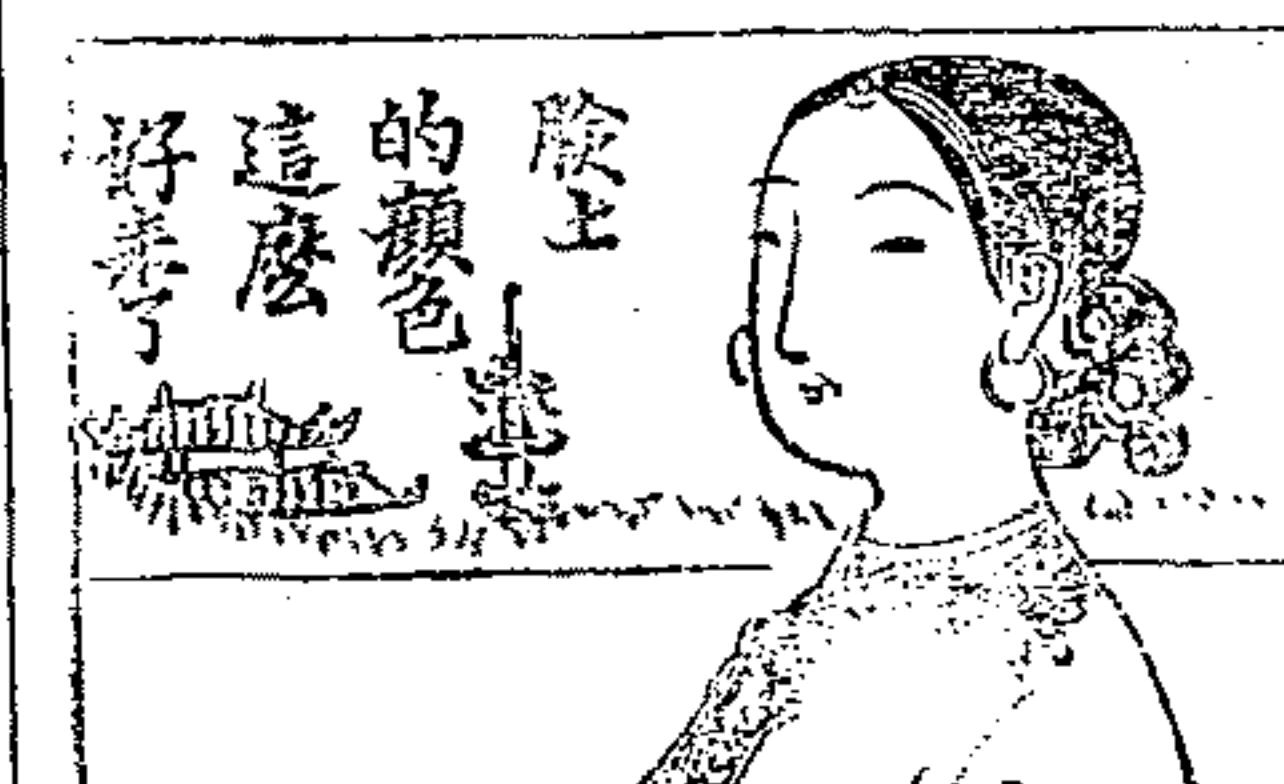 臉上
的顏色
這麼
好了